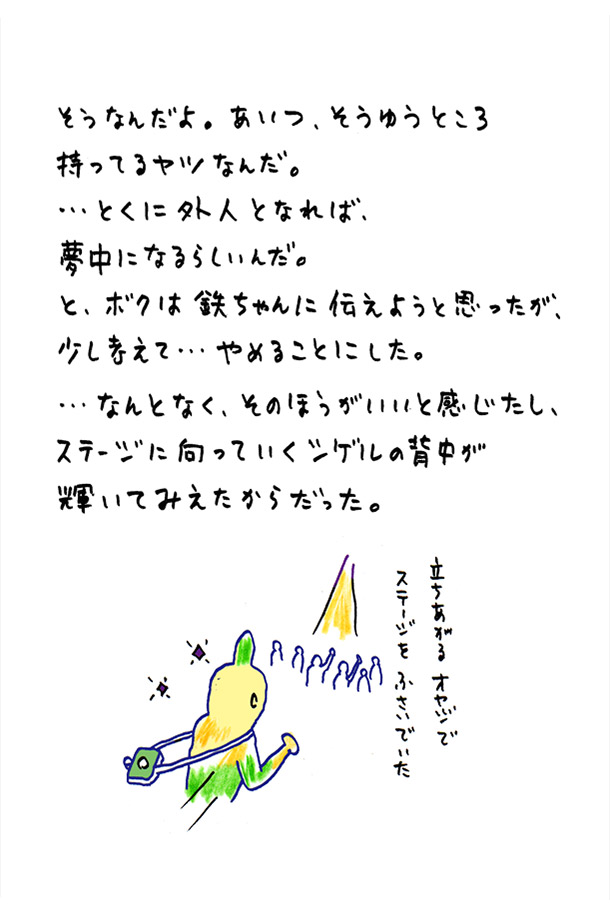 そうなんだよ。あいつ、そうゆうところ
持ってるヤツなんだ。
…とくに外人となれば、
夢中になるらしいんだ。
と、ボクは鉄ちゃんに伝えようと思ったが、
少し考えて…やめることにした。
…なんとなく、そのほうがいいと感じたし、
ステージに向っていくシゲルの背中が
輝いてみえたからだった。
立ちあがるオヤジで
ステージをふさいでいた